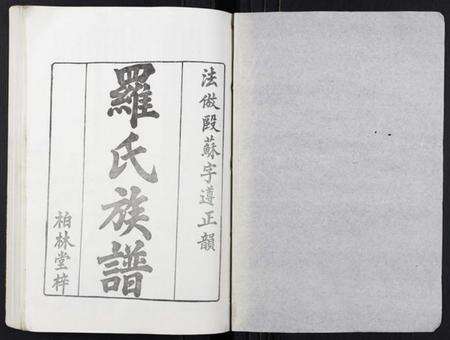 法倣歐蘇字遵正韻
羅氏族譜
柏林堂梓